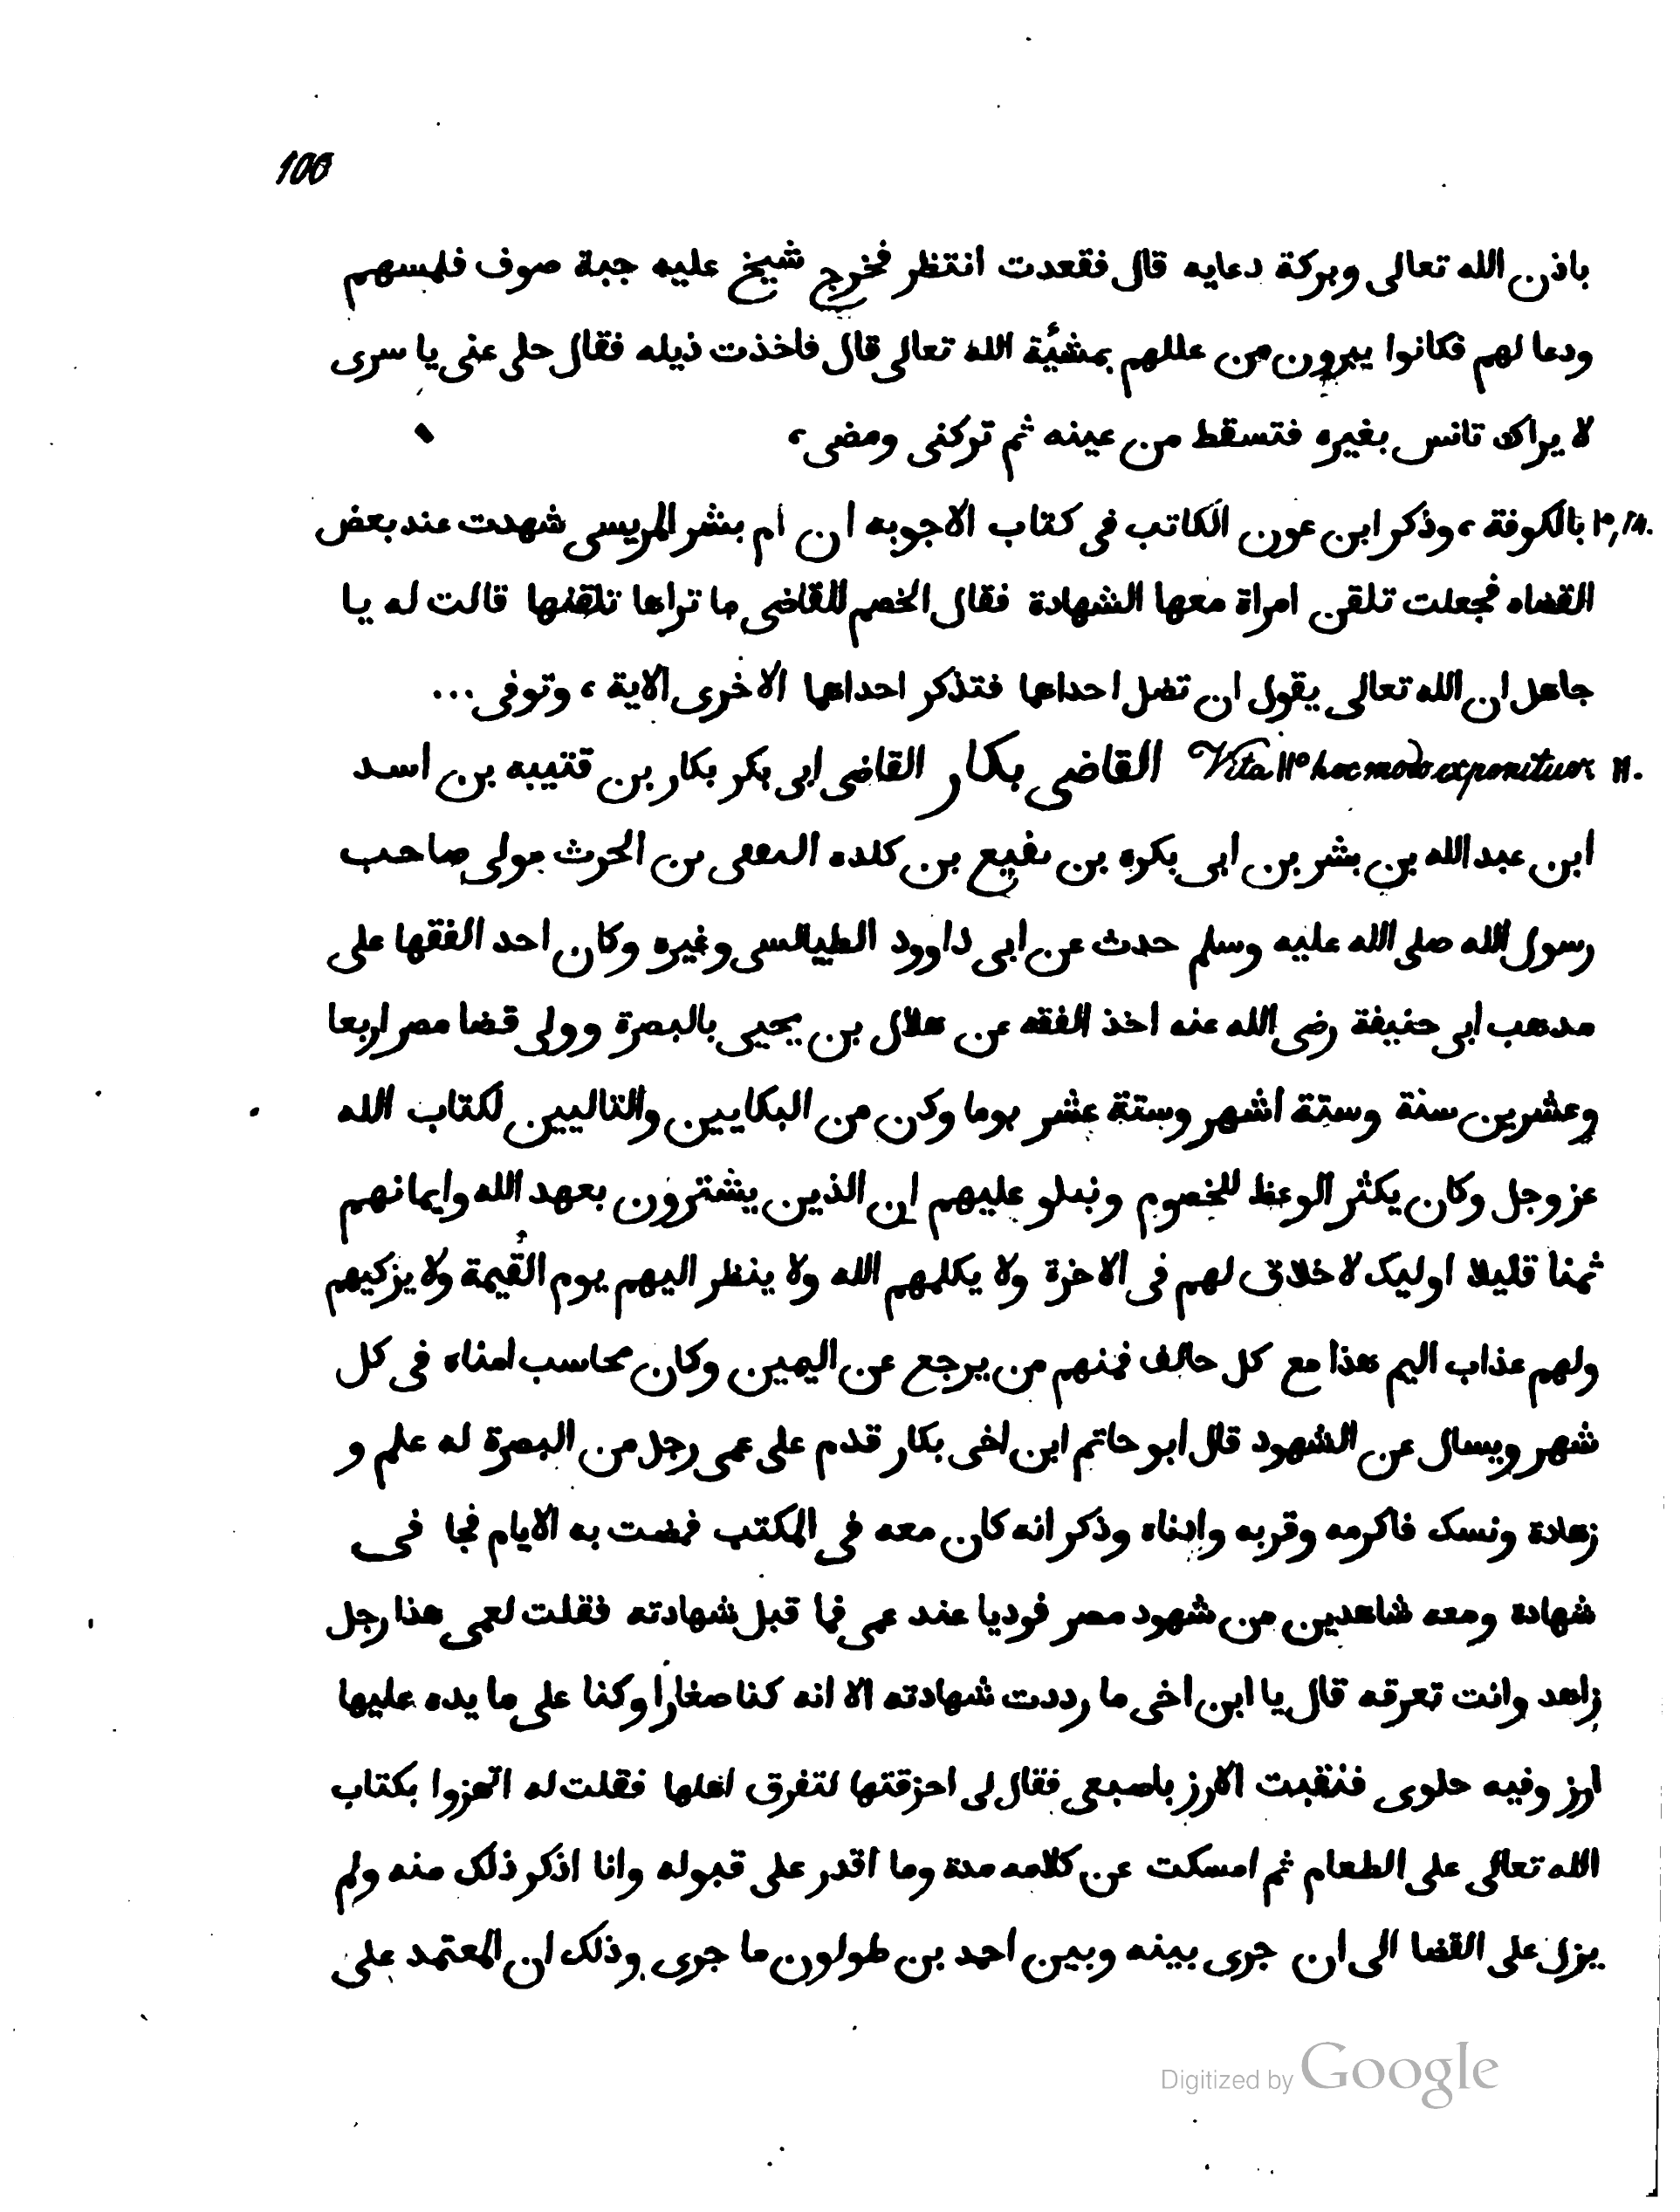 100
باذن الله تعالى وبركة دعايه قال فقعدت انتظر فخرج شيخ عليه جبة صوف فلمسهم
ودعا لهم فكانوا يبرون من عللهم بمشئة الله تعالى قال فاخذت ذيله فقال حلى عنى يا سرى
لا يراك تانس بغيره فتسقط من عينه ثم تركنى ومضى،
بالكوفة، وذكر ابن عون الكاتب فى كتاب الاجوبه ان ام بشر المريسى شهدت عند بعض
القضاه فجعلت تلقن امراة معها الشهادة فقال الخصم للقاضى ما تراها تلقنها قالت له يا
جاهل ان الله تعالى يقول ان تضل احداها فتذكر احداهما الاخرى الاية، وتوفى ...
11. Vita 11º hoc modo exponitur القاضى بكار القاضى ابى بكر بكار بن قتيبه بن اسد
ابن عبد الله بن بشر بن ابى بكره بن نفيع بن كلده بن الحرث مولى صاحب
رسول الله صلى الله عليه وسلم حدث عن ابى داوود الطيالسى وغيره وكان احد الفقها على
مدهب ابى حنيفة رضى الله عنه اخذ الفقه عن هلال بن يحيى بالبصرة وولى قضا مصر اربعا
وعشرين سنة وستة اشهر وستة عشر يوما وكن من البكايين والتاليين لكتاب الله
عز وجل وكان يكثر الوعظ للخصوم ونبلو عليهم ان الذين يشترون بعهد الله وايمانهم
ثمنا قليلا اوليك لا خلاق لهم فى الاخرة ولا يكلمهم الله ولا ينظر اليهم يوم القيمة ولا يزكيهم
ولهم عذاب اليم هذا مع كل حالف فمنهم من يرجع عن اليمين وكان محاسب امناه فى كل
شهر ويسال عن الشهود قال ابو حاتم ابن اخى بكار قدم على عمى رجل من البصرة له علم و
زهادة ونسك فاكرمه وقربه وادناه وذكر انه كان معه فى المكتب فمضت به الايام فجا فى
شهادة ومعه شاهدين من شهود مصر فوديا عند عمى فما قبل شهادته فقلت لعمى هذا رجل
زاهد وانت تعرفه قال يا ابن اخى ما رددت شهادته الا انه كنا صغارا وكنا على مايده عليها
ارز وفيه حلوى فنقبت الارز باصبعى فقال لى احزقتها لتغرق اهلها فقلت له اتهزوا بكتاب
الله تعالى على الطعام ثم امسكت عن كلامه مدة وما اقدر على قبوله وانا اذكر ذلك منه ولم
يزل على القضا الى ان جرى بينه وبين احمد بن طولون ما جرى وذلك ان المعتمد على
Digitized by Google